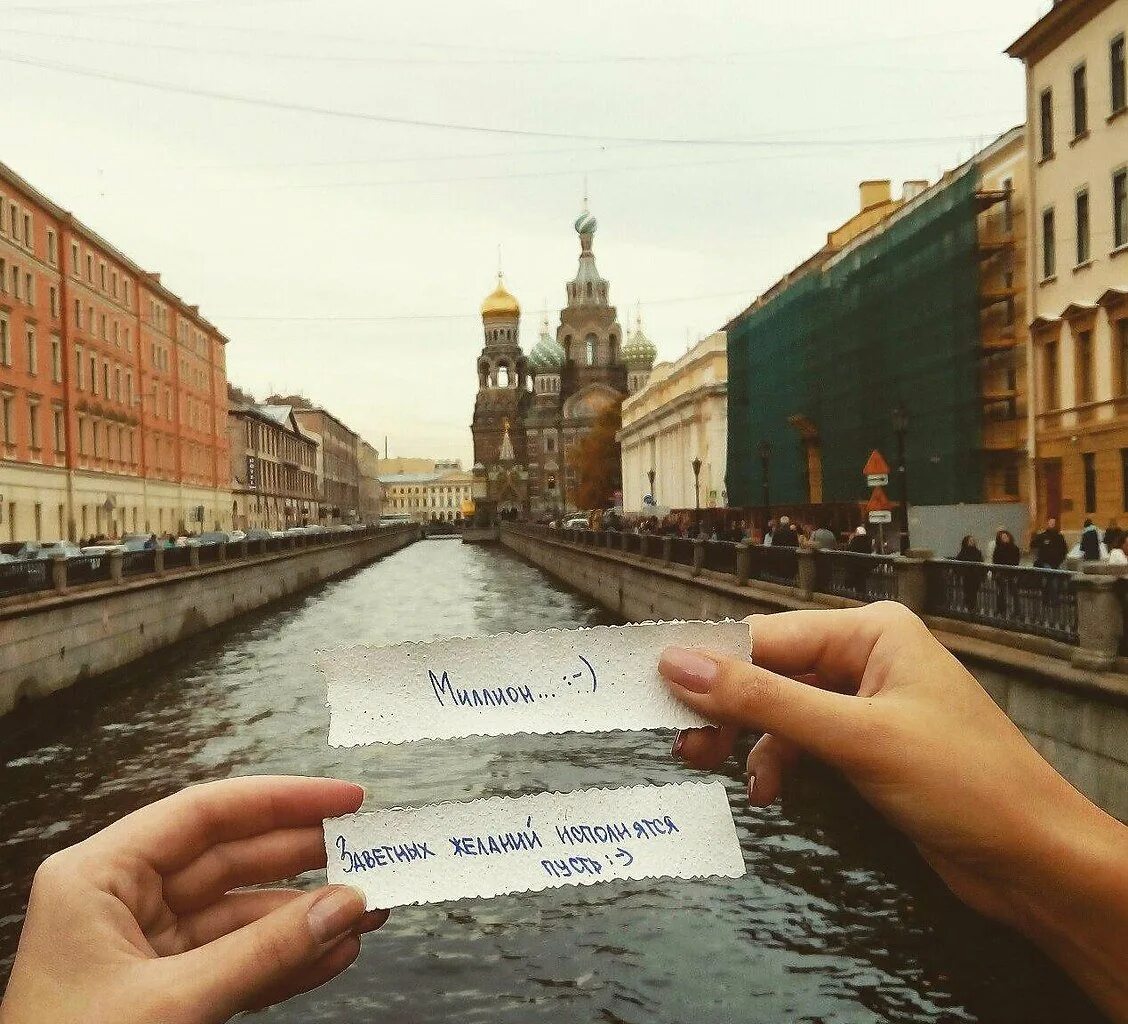 Миллион... :-)
Заветных желаний исполнятся
пусть :-)